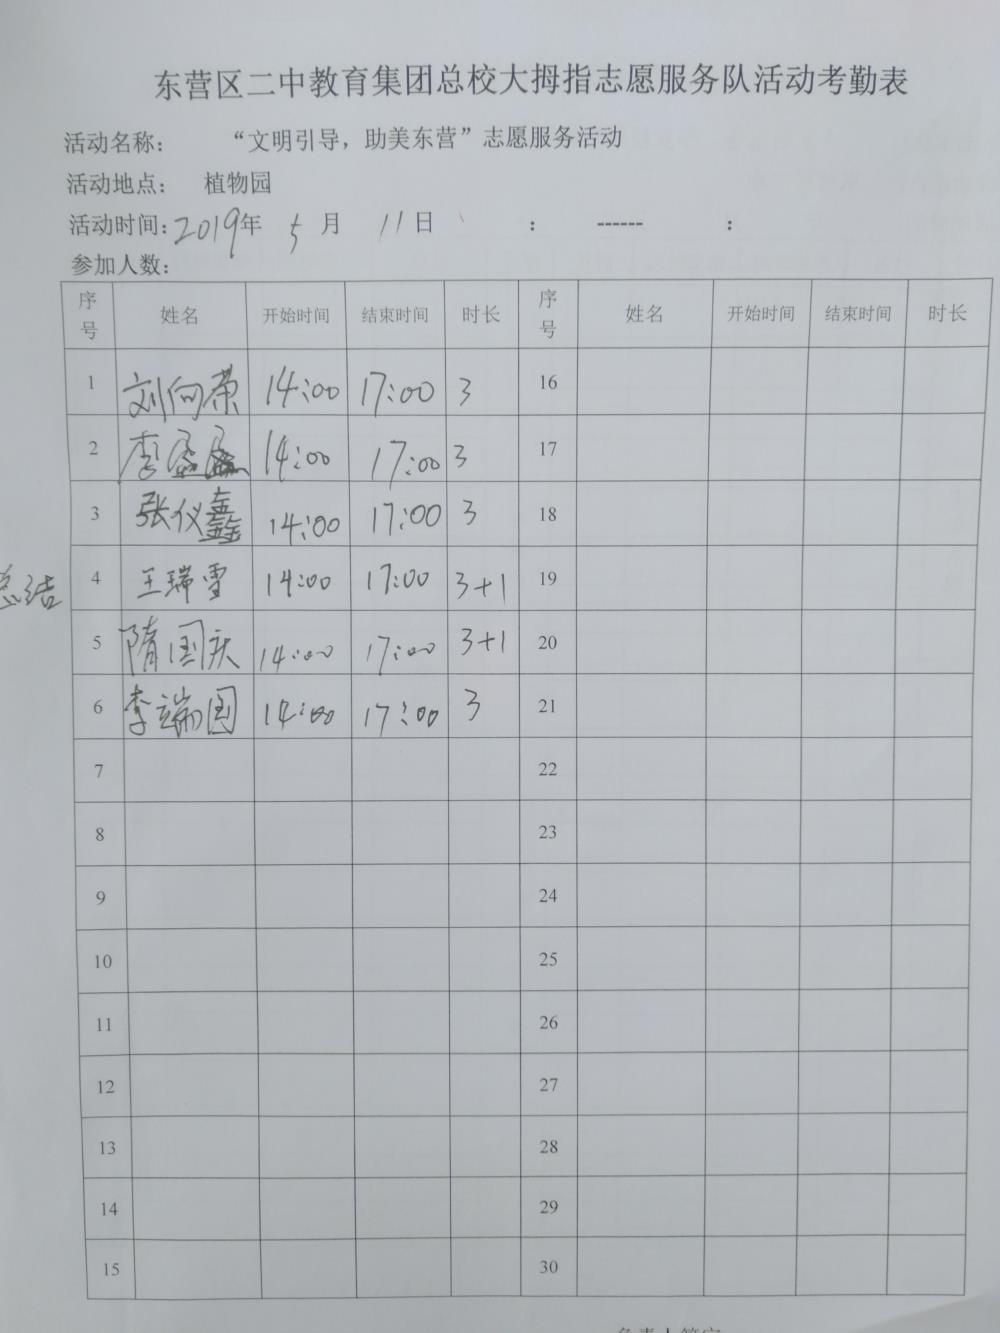 东营区二中教育集团总校大拇指志愿服务队活动考勤表
活动名称： “文明引导，助美东营”志愿服务活动
活动地点： 植物园
活动时间：2019年 5 月 11日 ： ------ ：
参加人数：
序号 姓名 开始时间 结束时间 时长 序号 姓名 开始时间 结束时间 时长
1 刘向荣 14:00 17:00 3 16
2 李盈盈 14:00 17:00 3 17
3 张仪鑫 14:00 17:00 3 18
总结 4 王瑞雪 14:00 17:00 3+1 19
5 隋国庆 14:00 17:00 3+1 20
6 李端国 14:00 17:00 3 21
7 22
8 23
9 24
10 25
11 26
12 27
13 28
14 29
15 30